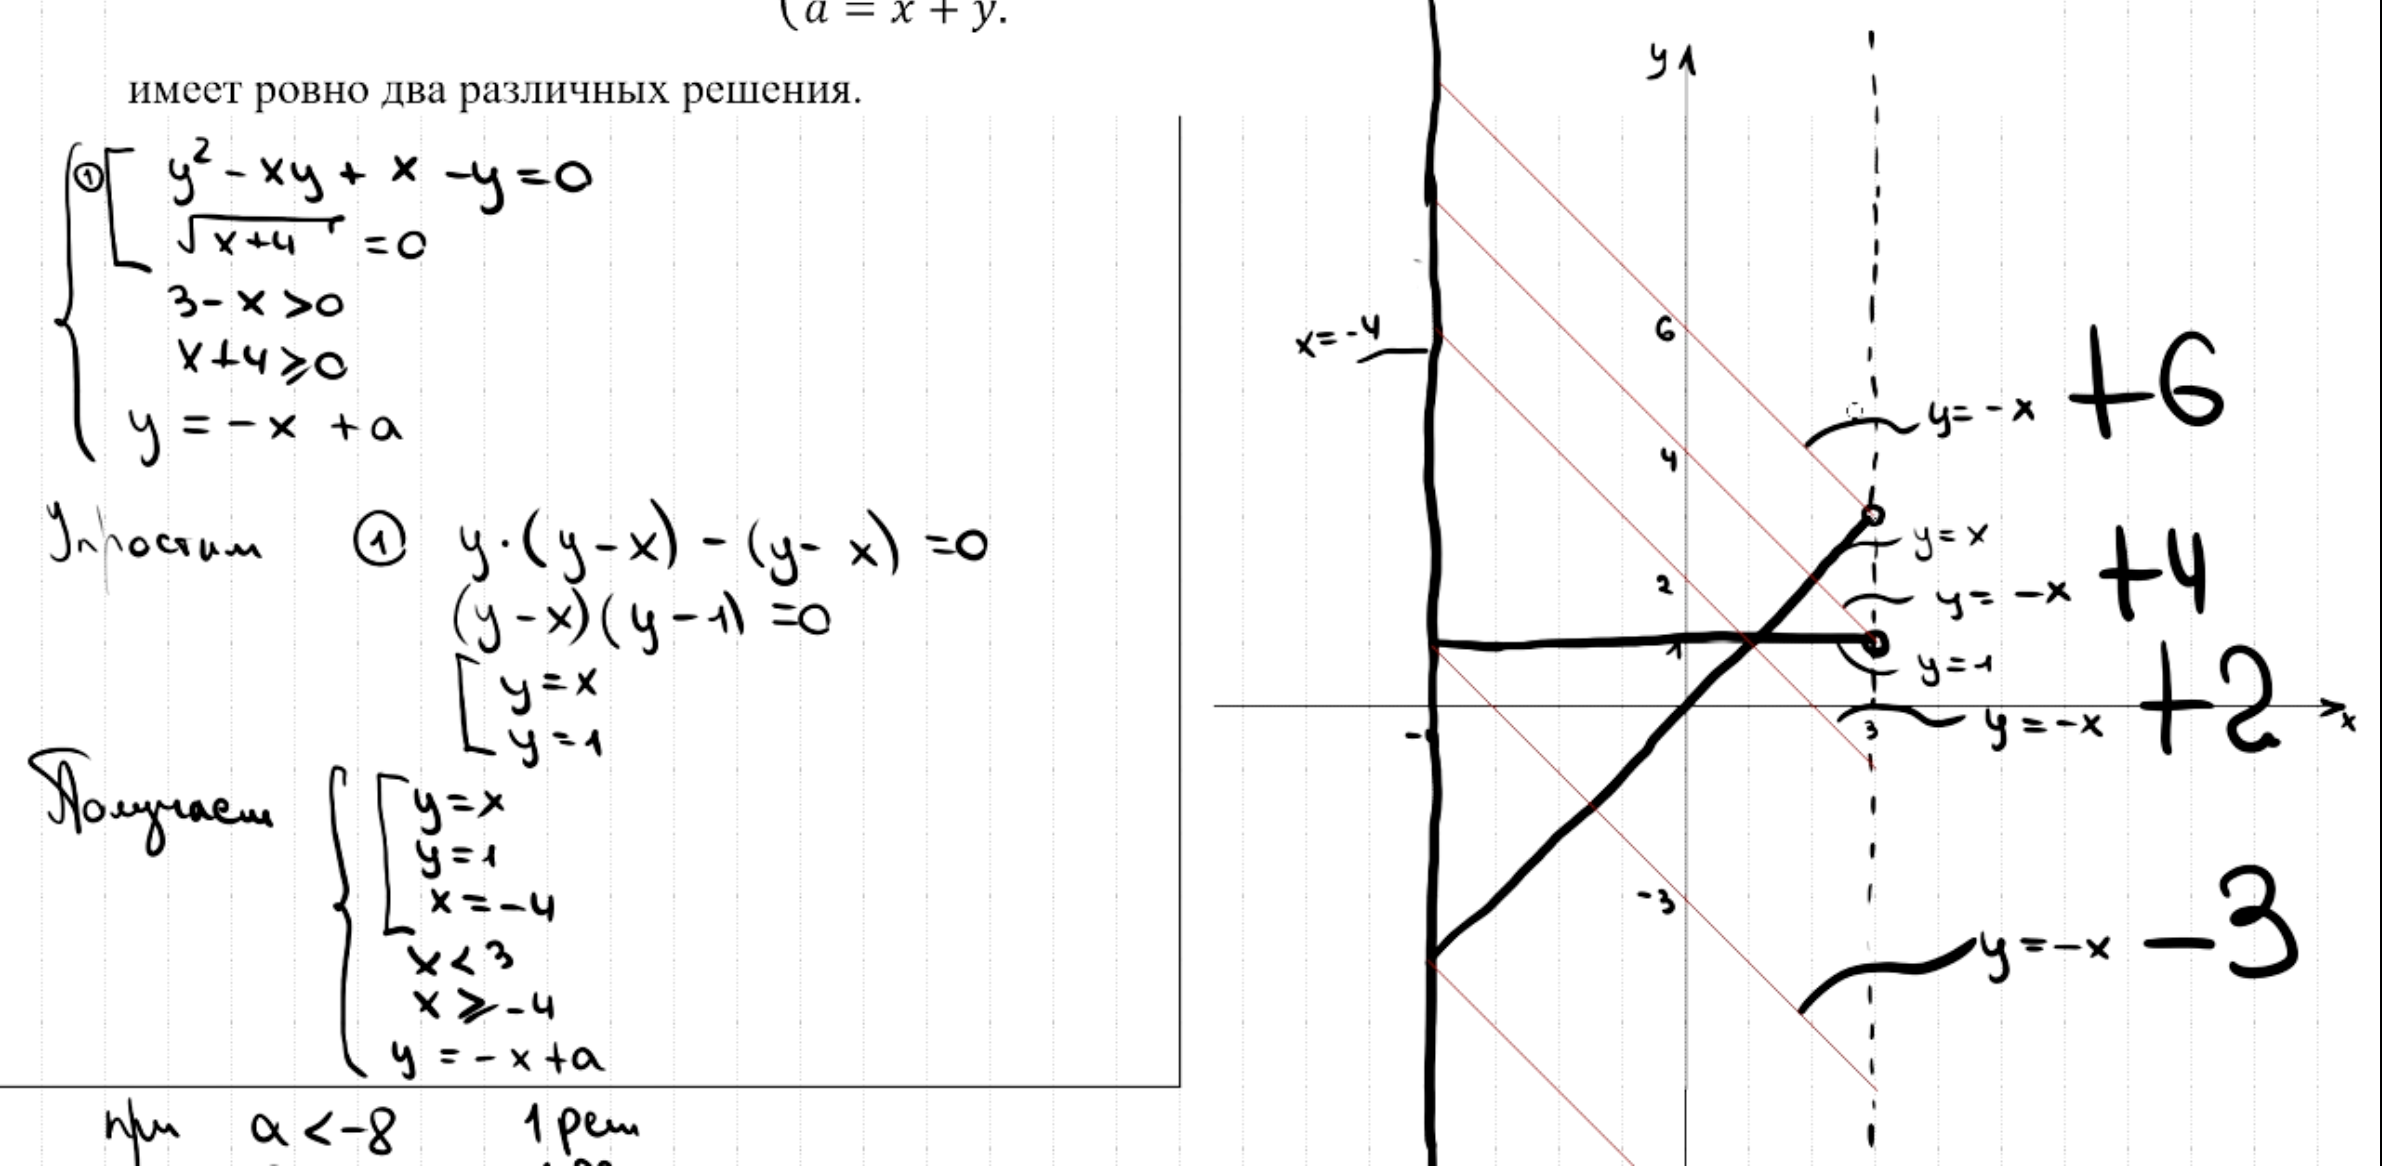 (a = x + y.
имеет ровно два различных решения.
① y² - xy + x - y = 0
√x+4 = 0
3 - x > 0
x + 4 ⩾ 0
y = -x + a
Упростим ① y·(y-x) - (y-x) = 0
(y-x)(y-1) = 0
y = x
y = 1
Получаем
y = x
y = 1
x = -4
x < 3
x ⩾ -4
y = -x + a
при a < -8 1 реш
y
x = -4
6
y = -x +6
4
y = x
y = -x +4
2
1
y = 1
y = -x +2
3
x
-3
y = -x -3